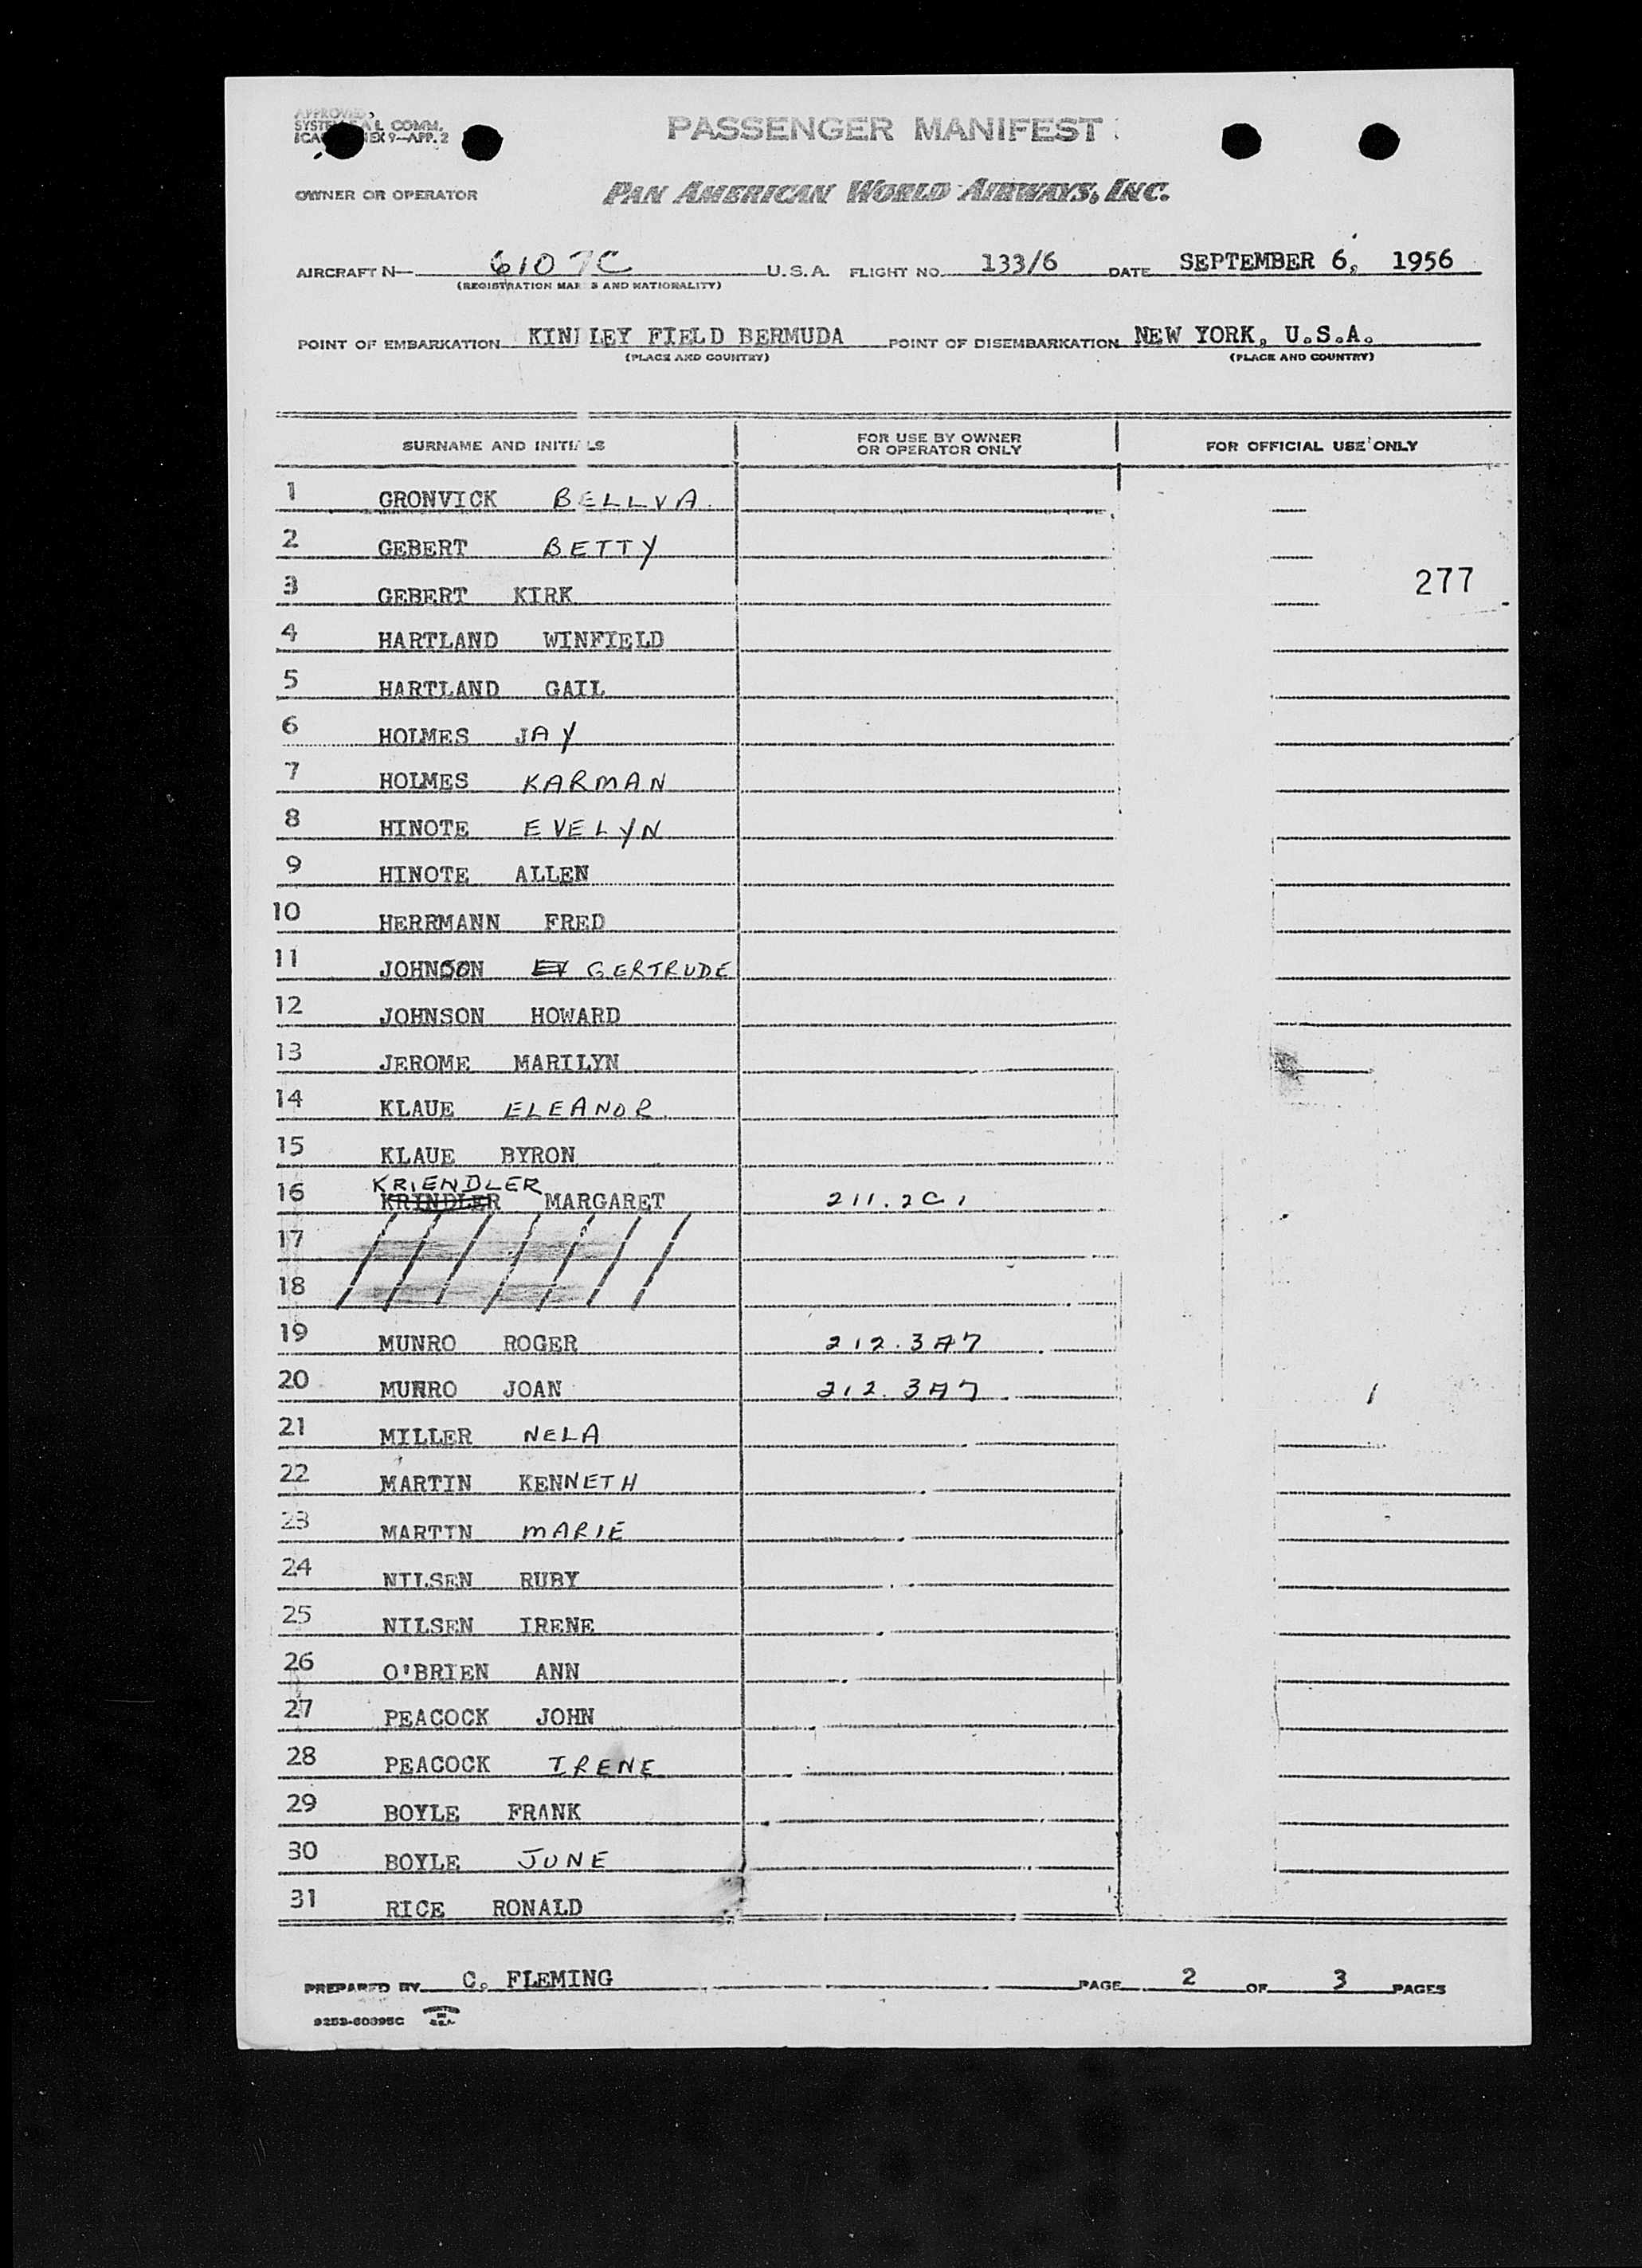 APPROVED,
SYSTEM L COMM.
ICA EX 9—APP. 2
PASSENGER MANIFEST
OWNER OR OPERATOR PAN AMERICAN WORLD AIRWAYS, INC.
AIRCRAFT N— 6107C U.S.A. FLIGHT NO. 133/6 DATE SEPTEMBER 6, 1956
(REGISTRATION MARKS AND NATIONALITY)
POINT OF EMBARKATION KINDLEY FIELD BERMUDA POINT OF DISEMBARKATION NEW YORK, U.S.A.
(PLACE AND COUNTRY) (PLACE AND COUNTRY)
SURNAME AND INITIALS FOR USE BY OWNER OR OPERATOR ONLY FOR OFFICIAL USE ONLY
1 GRONVICK BELLVA
2 GEBERT BETTY
277
3 GEBERT KIRK
4 HARTLAND WINFIELD
5 HARTLAND GAIL
6 HOLMES JAY
7 HOLMES KARMAN
8 HINOTE EVELYN
9 HINOTE ALLEN
10 HERRMANN FRED
11 JOHNSON GERTRUDE
12 JOHNSON HOWARD
13 JEROME MARILYN
14 KLAUE ELEANOR
15 KLAUE BYRON
KRIENDLER
16 KRINDLER MARGARET 211.2C1
17
18
19 MUNRO ROGER 212.3A7
20 MUNRO JOAN 212.3A7
21 MILLER NELA
22 MARTIN KENNETH
23 MARTIN MARIE
24 NILSEN RUBY
25 NILSEN IRENE
26 O'BRIEN ANN
27 PEACOCK JOHN
28 PEACOCK IRENE
29 BOYLE FRANK
30 BOYLE JUNE
31 RICE RONALD
PREPARED BY C. FLEMING PAGE 2 OF 3 PAGES
9252-60395C PRINTED IN U.S.A.